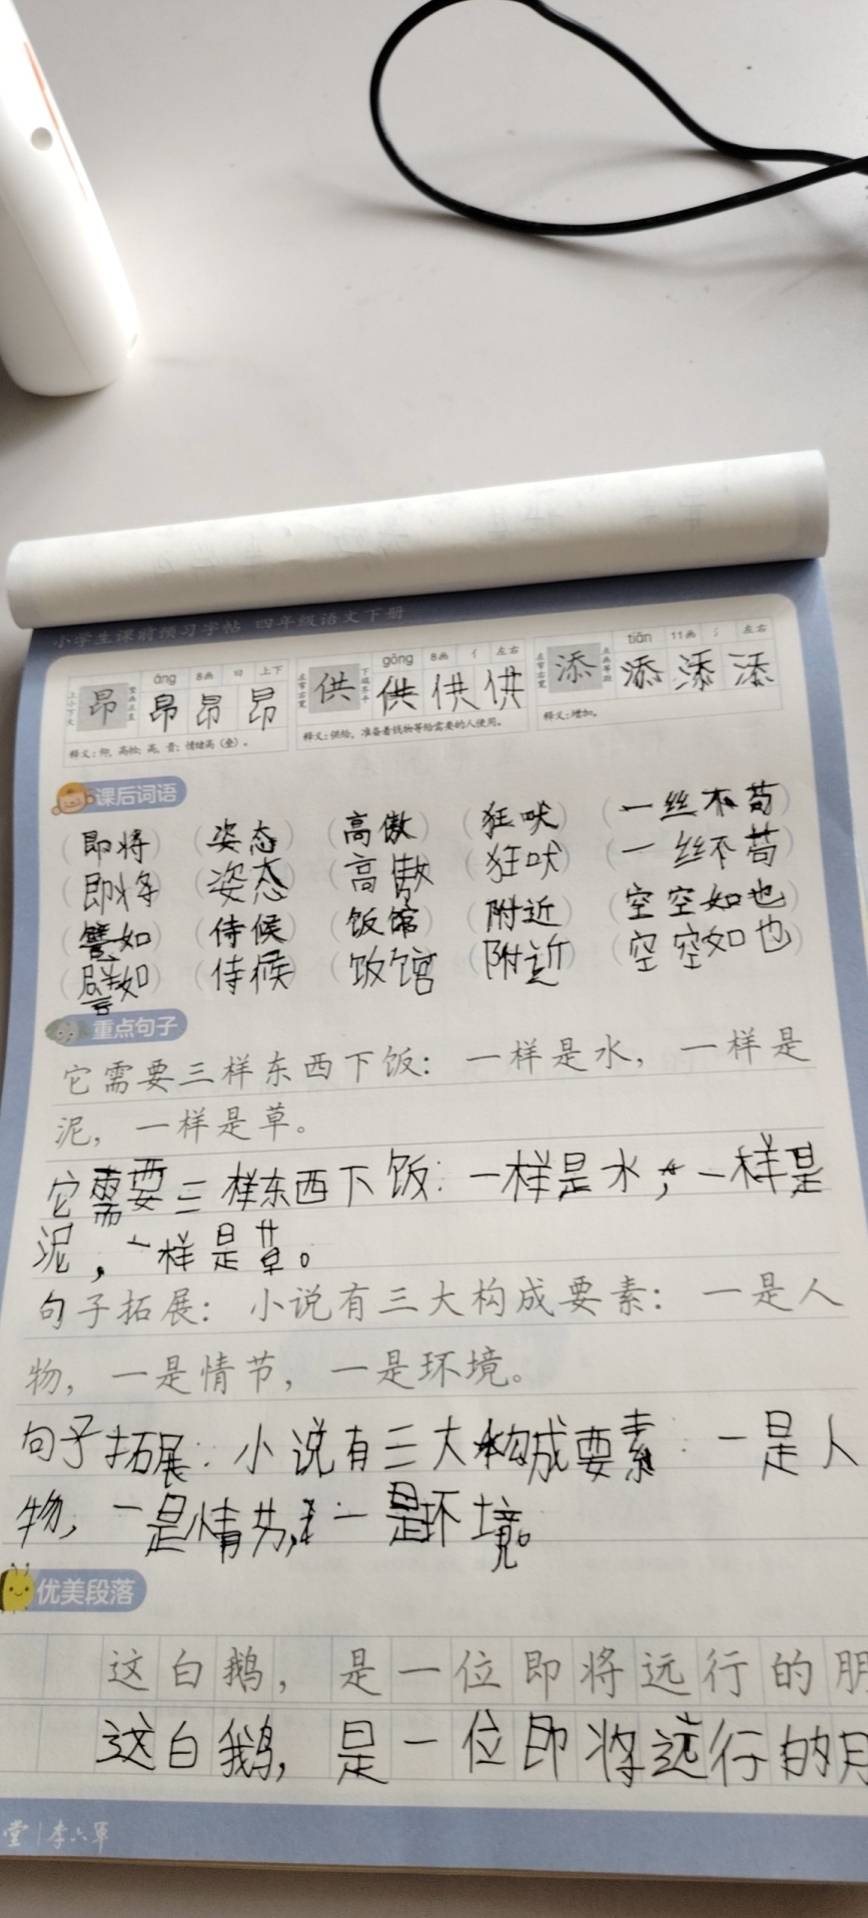 小学生课前预习字帖 四年级语文下册
áng 8画 日 上下 gōng 8画 亻 左右 tiān 11画 氵 左右
昂 昂 昂 昂 供 供 供 供 添 添 添 添
释义:仰,高抬;高,贵;情绪高(叠)。 释义:供给,准备着钱物等给需要的人使用。 释义:增加。
课后词语
(即将) (姿态) (高傲) (狂吠) (一丝不苟)
(即将) (姿态) (高傲) (狂吠) (一丝不苟)
(譬如) (侍候) (饭馆) (附近) (空空如也)
(譬如) (侍候) (饭馆) (附近) (空空如也)
重点句子
它需要三样东西下饭:一样是水,一样是
泥,一样是草。
它需要三样东西下饭:一样是水,一样是
泥,一样是草。
句子拓展:小说有三大构成要素:一是人
物,一是情节,一是环境。
句子拓展:小说有三大构成要素:一是人
物,一是情节,一是环境。
优美段落
这白鹅,是一位即将远行的朋
这白鹅,是一位即将远行的月
堂|李六军